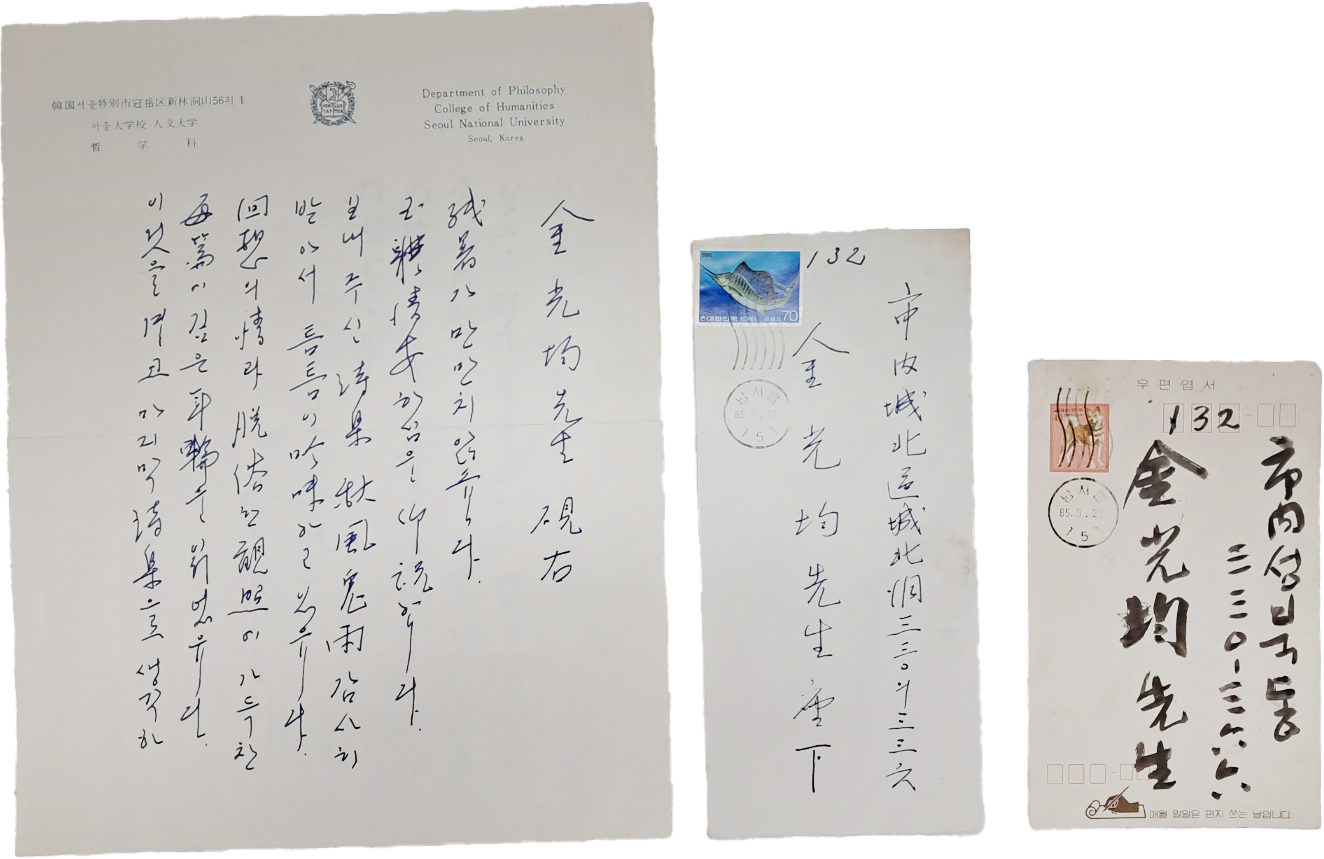 韓国서울特別市冠岳区新林洞山56의 1
서울大学校 人文大学
哲 学 科
Department of Philosophy
College of Humanities
Seoul National University
Seoul, Korea
金光均先生 硯右
残暑가 만만치 않습니다.
玉體 清安하심을 仰祝합니다.
보내주신 詩集 秋風鬼雨 감사히
받아서 틈틈이 吟味하고 있습니다.
回想의 情과 脱俗한 觀照이 가득찬
每篇이 깊은 耳輪을 南겼습니다.
이것을 마지막 詩集으로 생각하
132
市内城北區城北洞三三〇의 三三六
金光均先生座下
대한민국 KOREA 70
남서울
85.9.
우편엽서
132
市內 성북구 성북동
三三〇-三六六
金光均先生
남서울
85.9.2
매월 말일은 편지 쓰는 날입니다.